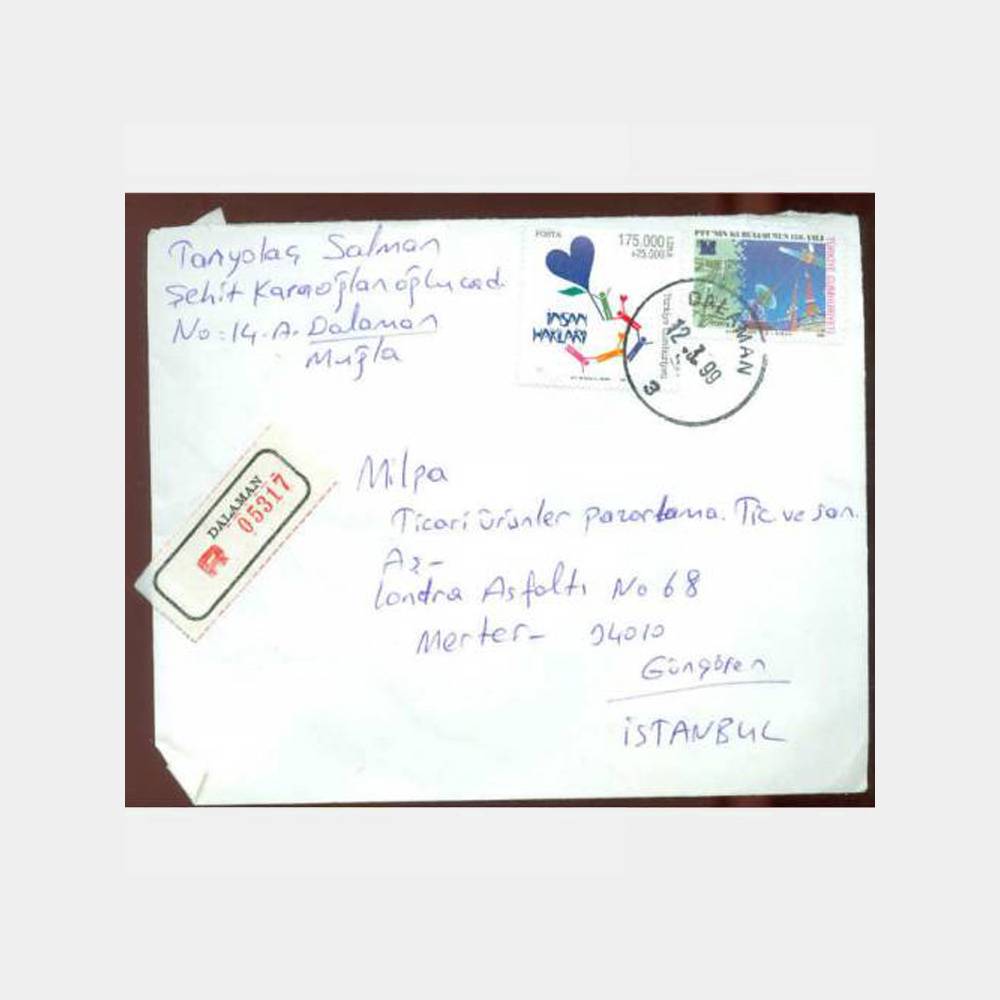 Tanyolaç Salman
Şehit Karaoğlanoğlu cad.
No: 14. A. Dalaman
Muğla
POSTA
175.000 LİRA
+25.000
İNSAN
HAKLARI
Türkiye Cumhuriyeti
PTT'NİN KURULUŞUNUN 158. YILI
TÜRKİYE CUMHURİYETİ
DALAMAN
12. 99
3
DALAMAN
R 05317
Milpa
Ticari Ürünler pazarlama. Tic ve san.
Aş-
Londra Asfaltı No 68
Merter- 34010
Güngören
İSTANBUL